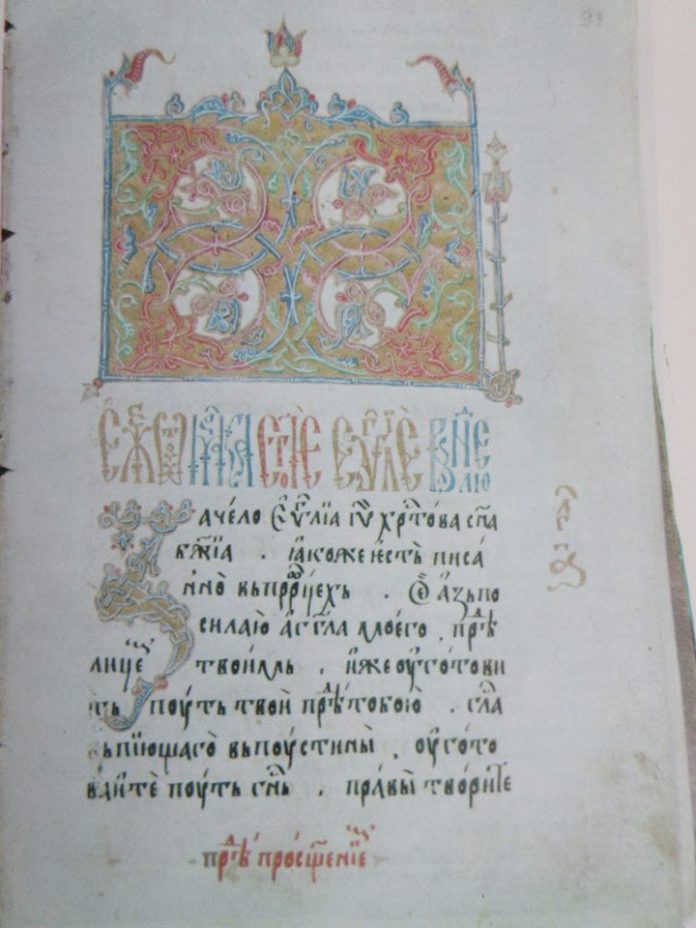 93
Ѿ МѠ҇ СТ҃ОЕ ЕѴ҃ЛІЕ
Зачело Єѵ҃лїа Іѵ҃ Хрⷭ҇това сн҃а
бж҃їа . ꙗкоже ѥсть писа
нно въ прⷪ҇рцехъ . Се азъ по
силаю агг҃ла моего , прⷣѣ
лицеⷨ твоимь , иже оуготови
ть поуть твои прⷣѣ тобою . гла
въпїющаго въ поустини , оугото
ваите поуть гнⷭ҇ь , правы творите
прⷣѣ просщенїеⷨ